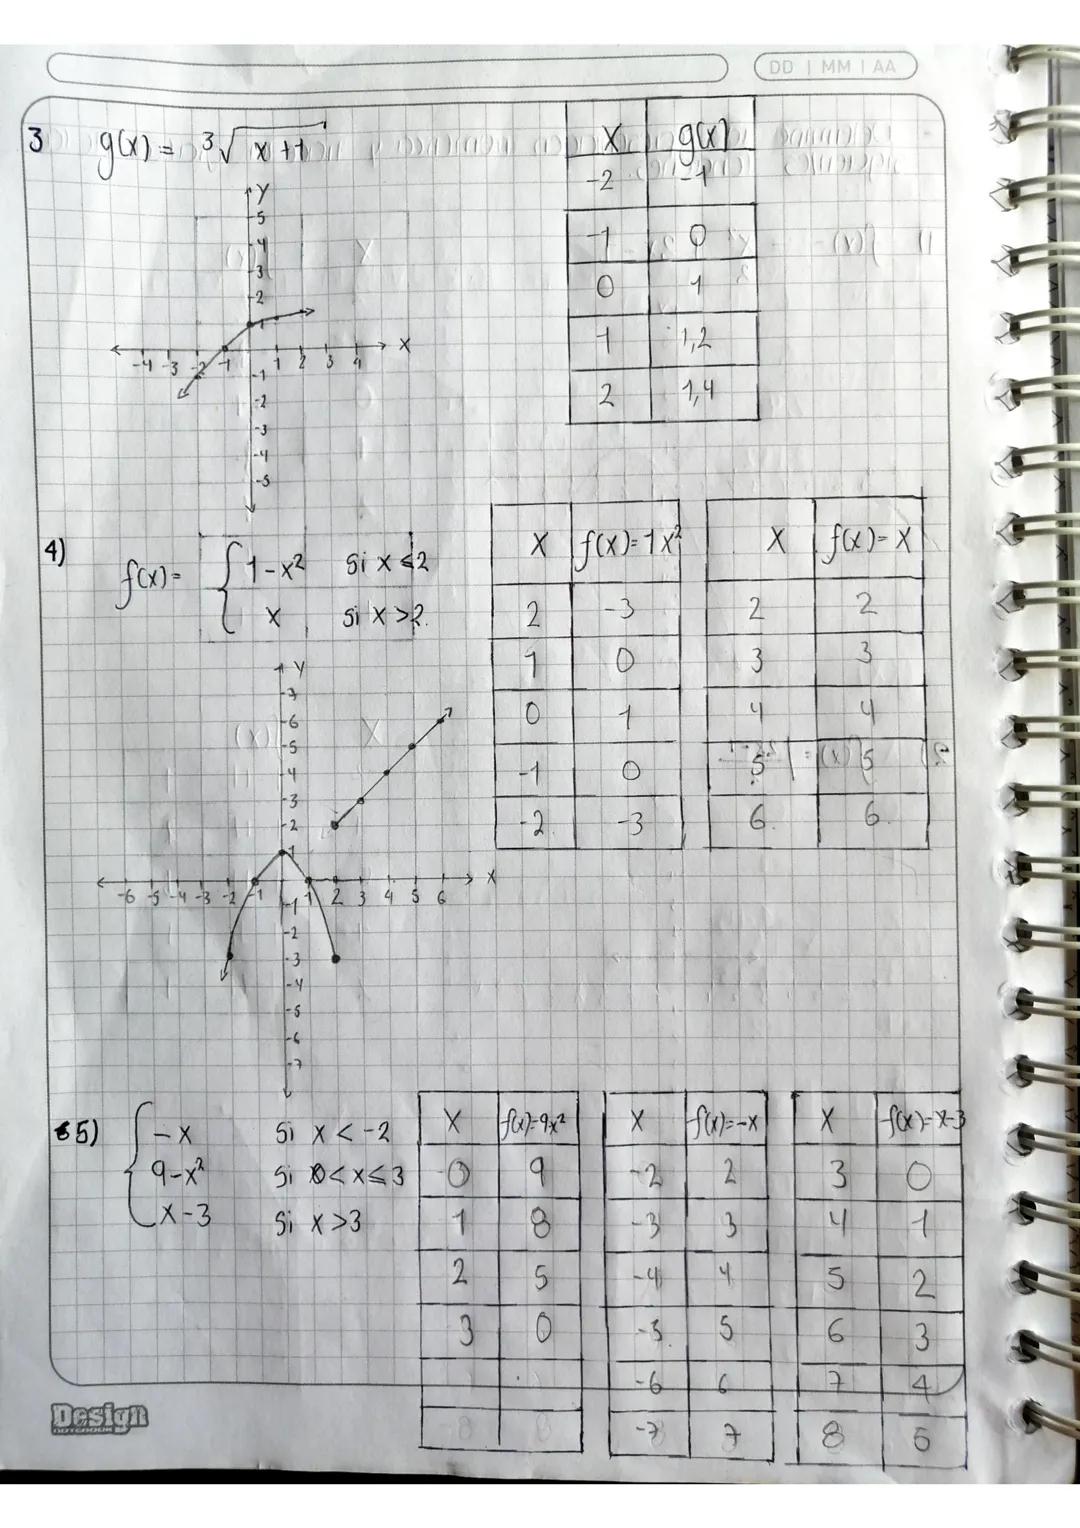 DD | MM | AA
3 g(x) = ³√x+1
X g(x)
-2 -1
-1 0
0 1
1 1,2
2 1,4
Y
5
4
3
2
1
-4 -3 -2 -1 1 2 3 4 X
-1
-2
-3
-4
-5
4)
f(x)= { 1-x² si x ≤2
x si x >2.
X f(x)=1x²
2 -3
1 0
0 1
-1 0
-2 -3
X f(x)=X
2 2
3 3
4 4
5 5
6. 6.
Y
7
6
5
4
3
2
1
-6 -5 -4 -3 -2 -1 1 2 3 4 5 6 X
-1
-2
-3
-4
-5
-6
-7
5) { -x si x < -2
9-x² si 0<x≤3
x-3 si x >3
X f(x)=9x²
0 9
1 8
2 5
3 0
X f(x)=-x
-2 2
-3 3
-4 4
-5 5
-6 6
-7 7
X f(x)=x-3
3 0
4 1
5 2
6 3
7 4
8 5
Design